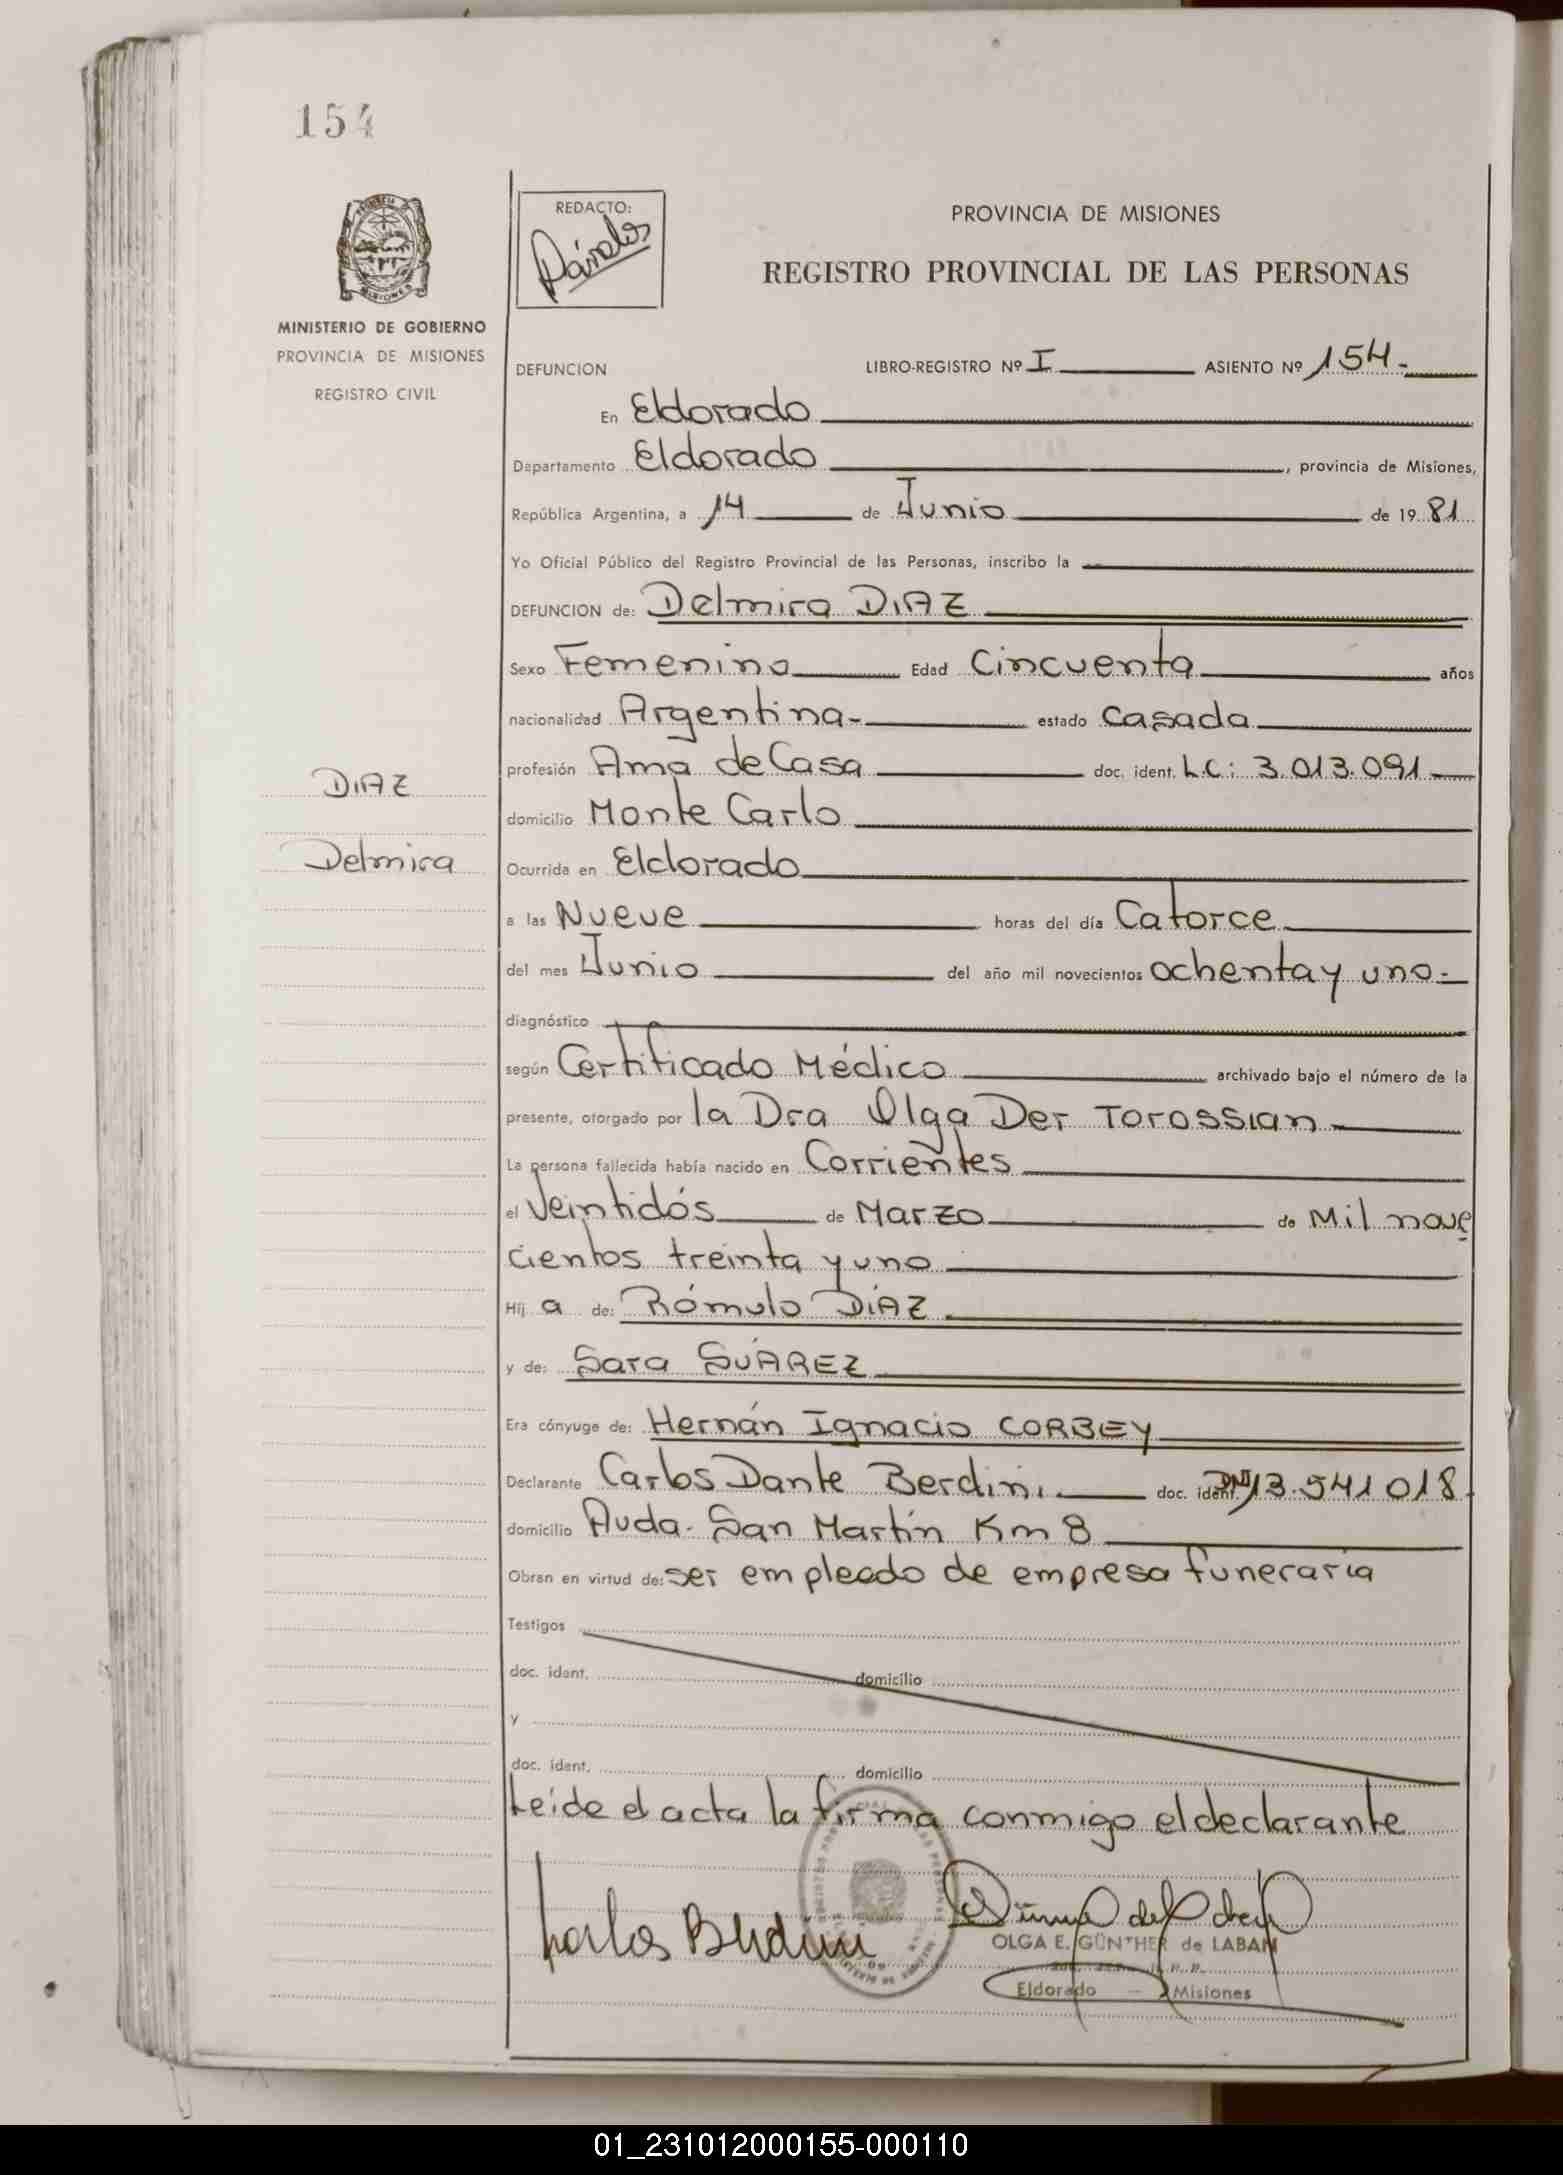 154
MINISTERIO DE GOBIERNO
PROVINCIA DE MISIONES
REGISTRO CIVIL
REDACTO:
PROVINCIA DE MISIONES
REGISTRO PROVINCIAL DE LAS PERSONAS
DEFUNCION LIBRO-REGISTRO Nº I ASIENTO Nº 154.
En Eldorado
Departamento Eldorado, provincia de Misiones,
República Argentina, a 14 de Junio de 19 81
Yo Oficial Público del Registro Provincial de las Personas, inscribo la
DEFUNCION de: Delmira DIAZ
Sexo Femenino Edad Cincuenta años
nacionalidad Argentina- estado Casada
profesión Ama de Casa doc. ident. L.C: 3.013.091
domicilio Monte Carlo
Ocurrida en Eldorado
a las Nueve horas del día Catorce
del mes Junio del año mil novecientos ochenta y uno.
diagnóstico
según Certificado Médico archivado bajo el número de la
presente, otorgado por la Dra Olga Der Torossian
La persona fallecida había nacido en Corrientes
el Veintidós de Marzo de Mil nove
cientos treinta y uno
Hij a de: Rómulo DÍAZ
y de: Sara SUÁREZ
Era cónyuge de: Hernán Ignacio CORBEY
Declarante Carlos Dante Berdini. doc. ident. DNI 13.541.018.
domicilio Avda. San Martín Km 8
Obran en virtud de: ser empleado de empresa funeraria
Testigos
doc. ident. domicilio
y
doc. ident. domicilio
Leída el acta la firma conmigo el declarante
Carlos Berdini
OLGA E. GÜNTHER de LABAN
Eldorado - Misiones
DIAZ
Delmira
01_231012000155-000110